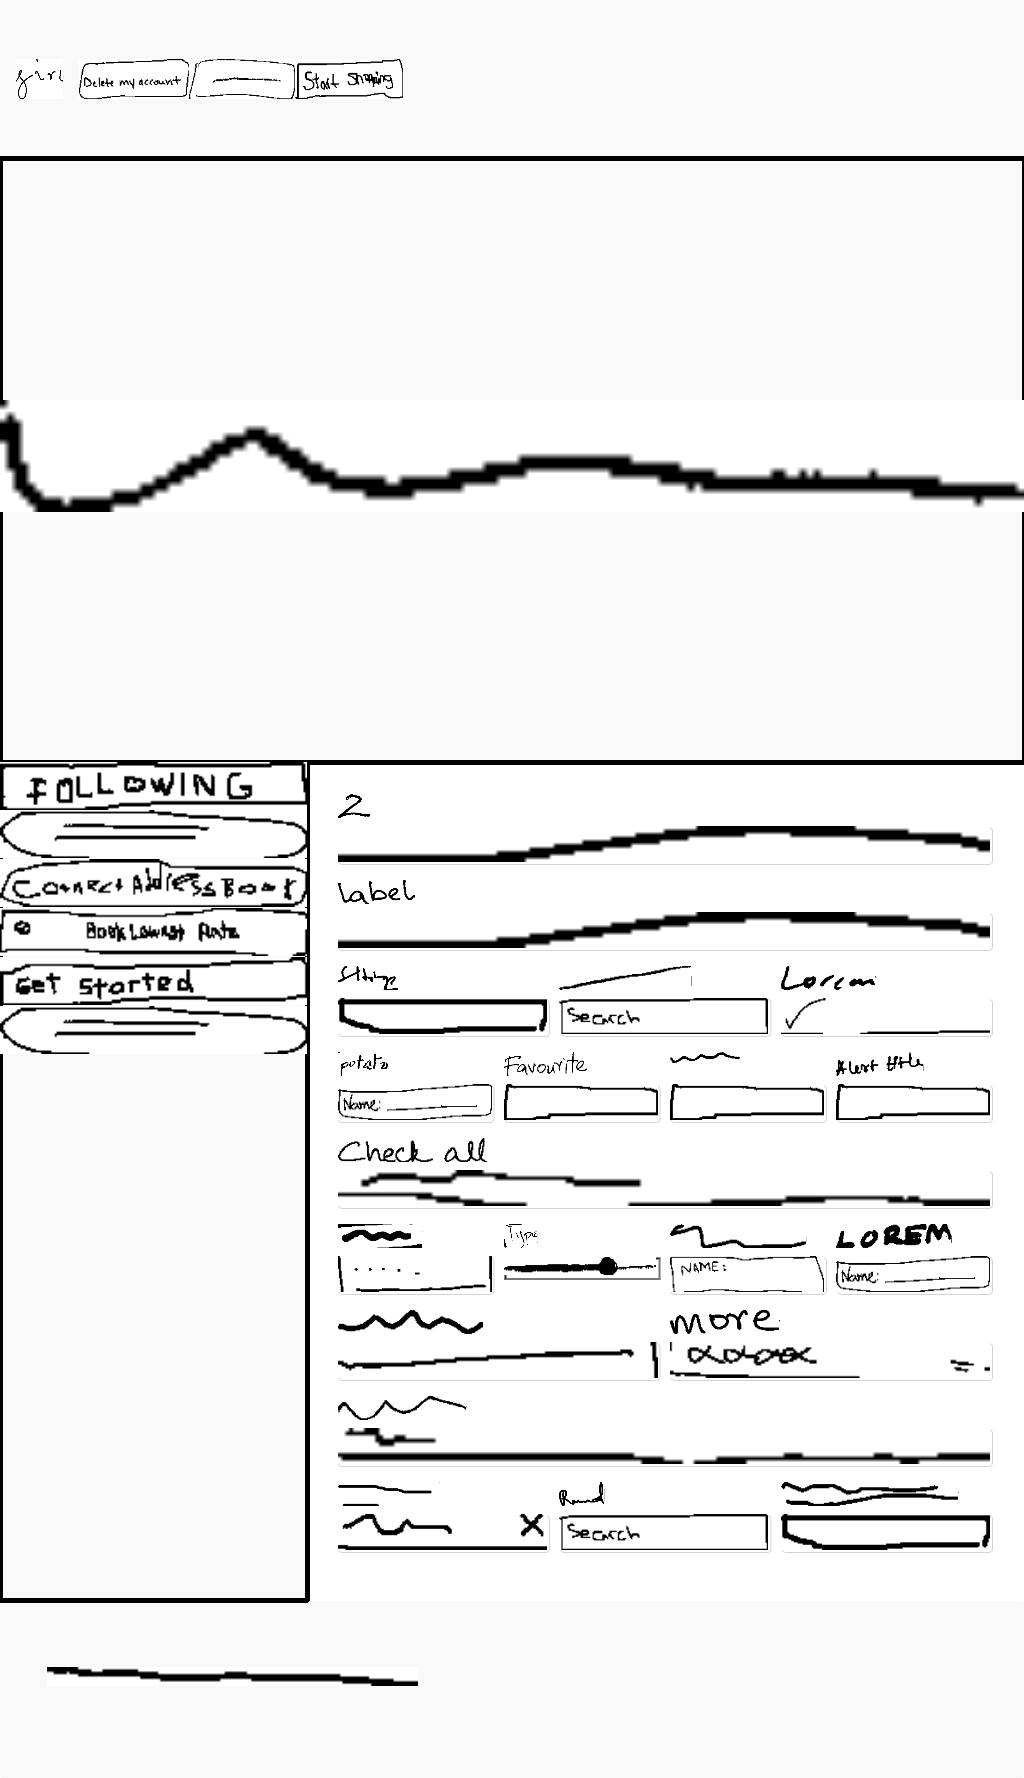 girl Delete my account Start Shopping
FOLLOWING
Connect Address Book
Book Lowest Rate
Get Started
2
label
Lorem
Search
potato Favourite Alert title
Name:
Check all
Type LOREM
NAME: Name:
more
Search